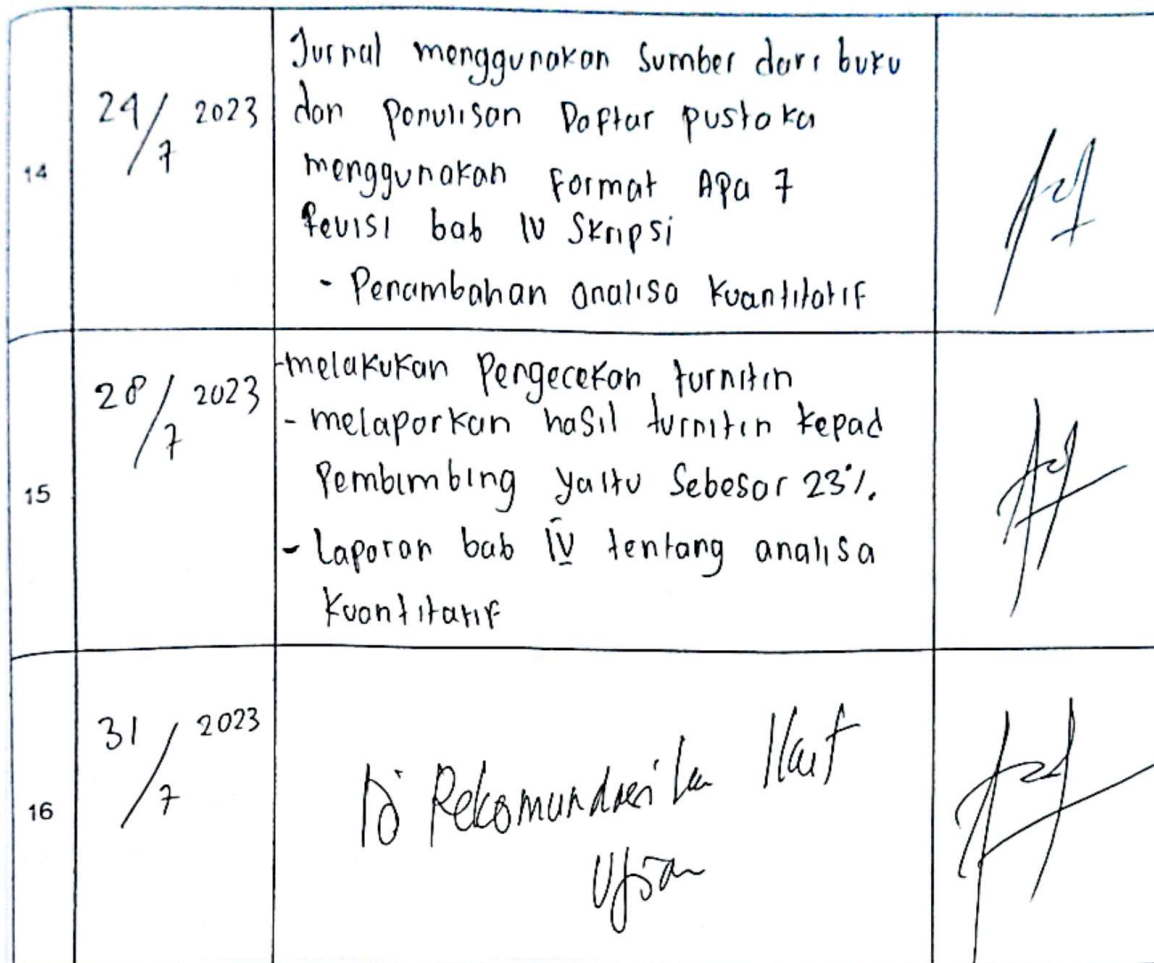 14
24/7 2023
Jurnal menggunakan Sumber dari buku
dan Penulisan Daftar pustaka
menggunakan Format Apa 7
Revisi bab IV Skripsi
- Penambahan analisa Kuantitatif
15
28/7 2023
-melakukan Pengecekan turnitin
- melaporkan hasil turnitin kepad
Pembimbing yaitu Sebesar 23%.
- Laporan bab IV tentang analisa
Kuantitatif
16
31/7 2023
Di Rekomundasika Ikut
Ujian